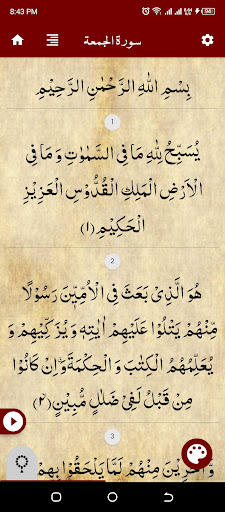 8:43 PM
94
سورة الجمعة
بِسْمِ اللهِ الرَّحْمٰنِ الرَّحِيْمِ
1
يُسَبِّحُ لِلّٰهِ مَا فِى السَّمٰوٰتِ وَ مَا فِى
الْاَرْضِ الْمَلِكِ الْقُدُّوْسِ الْعَزِيْزِ
الْحَكِيْمِ ﴿۱﴾
2
هُوَ الَّذِىْ بَعَثَ فِى الْاُمِّيّٖنَ رَسُوْلًا
مِّنْهُمْ يَتْلُوْا عَلَيْهِمْ اٰيٰتِهٖ وَ يُزَكِّيْهِمْ وَ
يُعَلِّمُهُمُ الْكِتٰبَ وَ الْحِكْمَةَ وَ اِنْ كَانُوْا
مِنْ قَبْلُ لَفِىْ ضَلٰلٍ مُّبِيْنٍ ﴿۲﴾
3
وَّ اٰخَرِيْنَ مِنْهُمْ لَمَّا يَلْحَقُوْا بِهِمْ